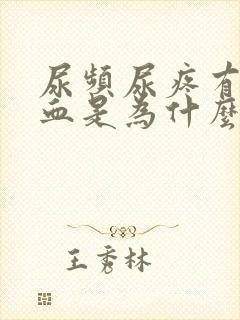 尿頻尿疼有
血是為什麼
王秀林